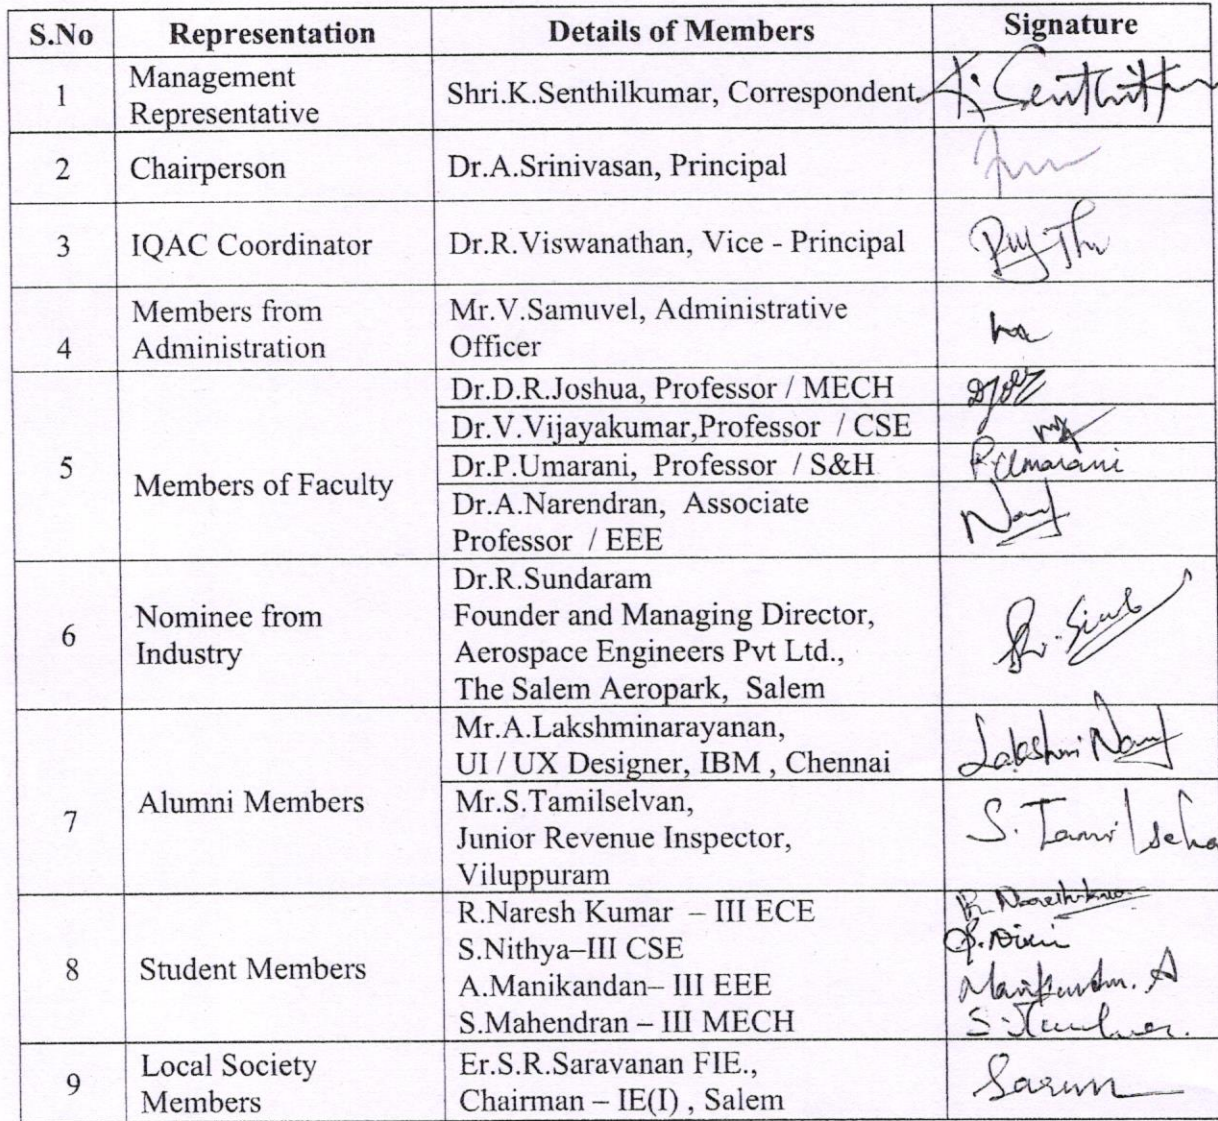 S.No Representation Details of Members Signature
1 Management Representative Shri.K.Senthilkumar, Correspondent K. Senthil
2 Chairperson Dr.A.Srinivasan, Principal
3 IQAC Coordinator Dr.R.Viswanathan, Vice - Principal
4 Members from Administration Mr.V.Samuvel, Administrative Officer
5 Members of Faculty
Dr.D.R.Joshua, Professor / MECH
Dr.V.Vijayakumar,Professor / CSE
Dr.P.Umarani, Professor / S&H P.Umarani
Dr.A.Narendran, Associate
Professor / EEE
6 Nominee from Industry
Dr.R.Sundaram
Founder and Managing Director,
Aerospace Engineers Pvt Ltd.,
The Salem Aeropark, Salem
7 Alumni Members
Mr.A.Lakshminarayanan,
UI / UX Designer, IBM , Chennai Lakshmi
Mr.S.Tamilselvan,
Junior Revenue Inspector,
Viluppuram S. Tamilselva
8 Student Members
R.Naresh Kumar – III ECE
S.Nithya–III CSE
A.Manikandan– III EEE Manikandan. A
S.Mahendran – III MECH
9 Local Society Members
Er.S.R.Saravanan FIE.,
Chairman – IE(I) , Salem